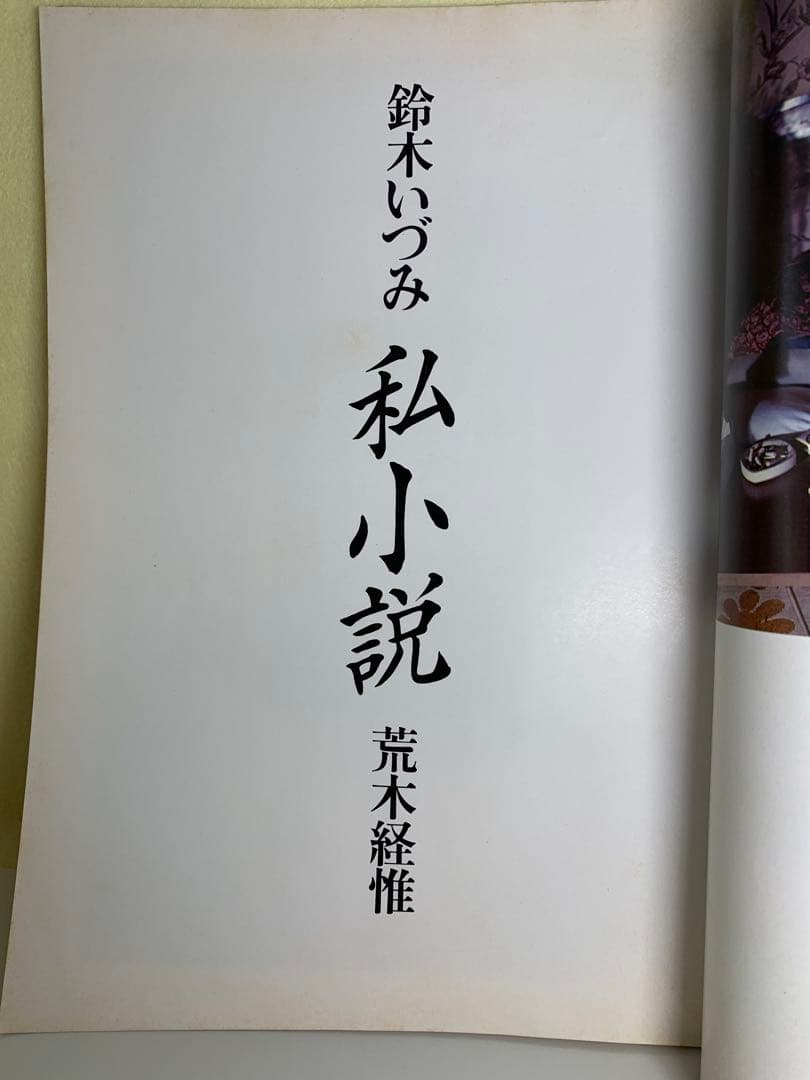 鈴木いづみ 私小説 荒木経惟